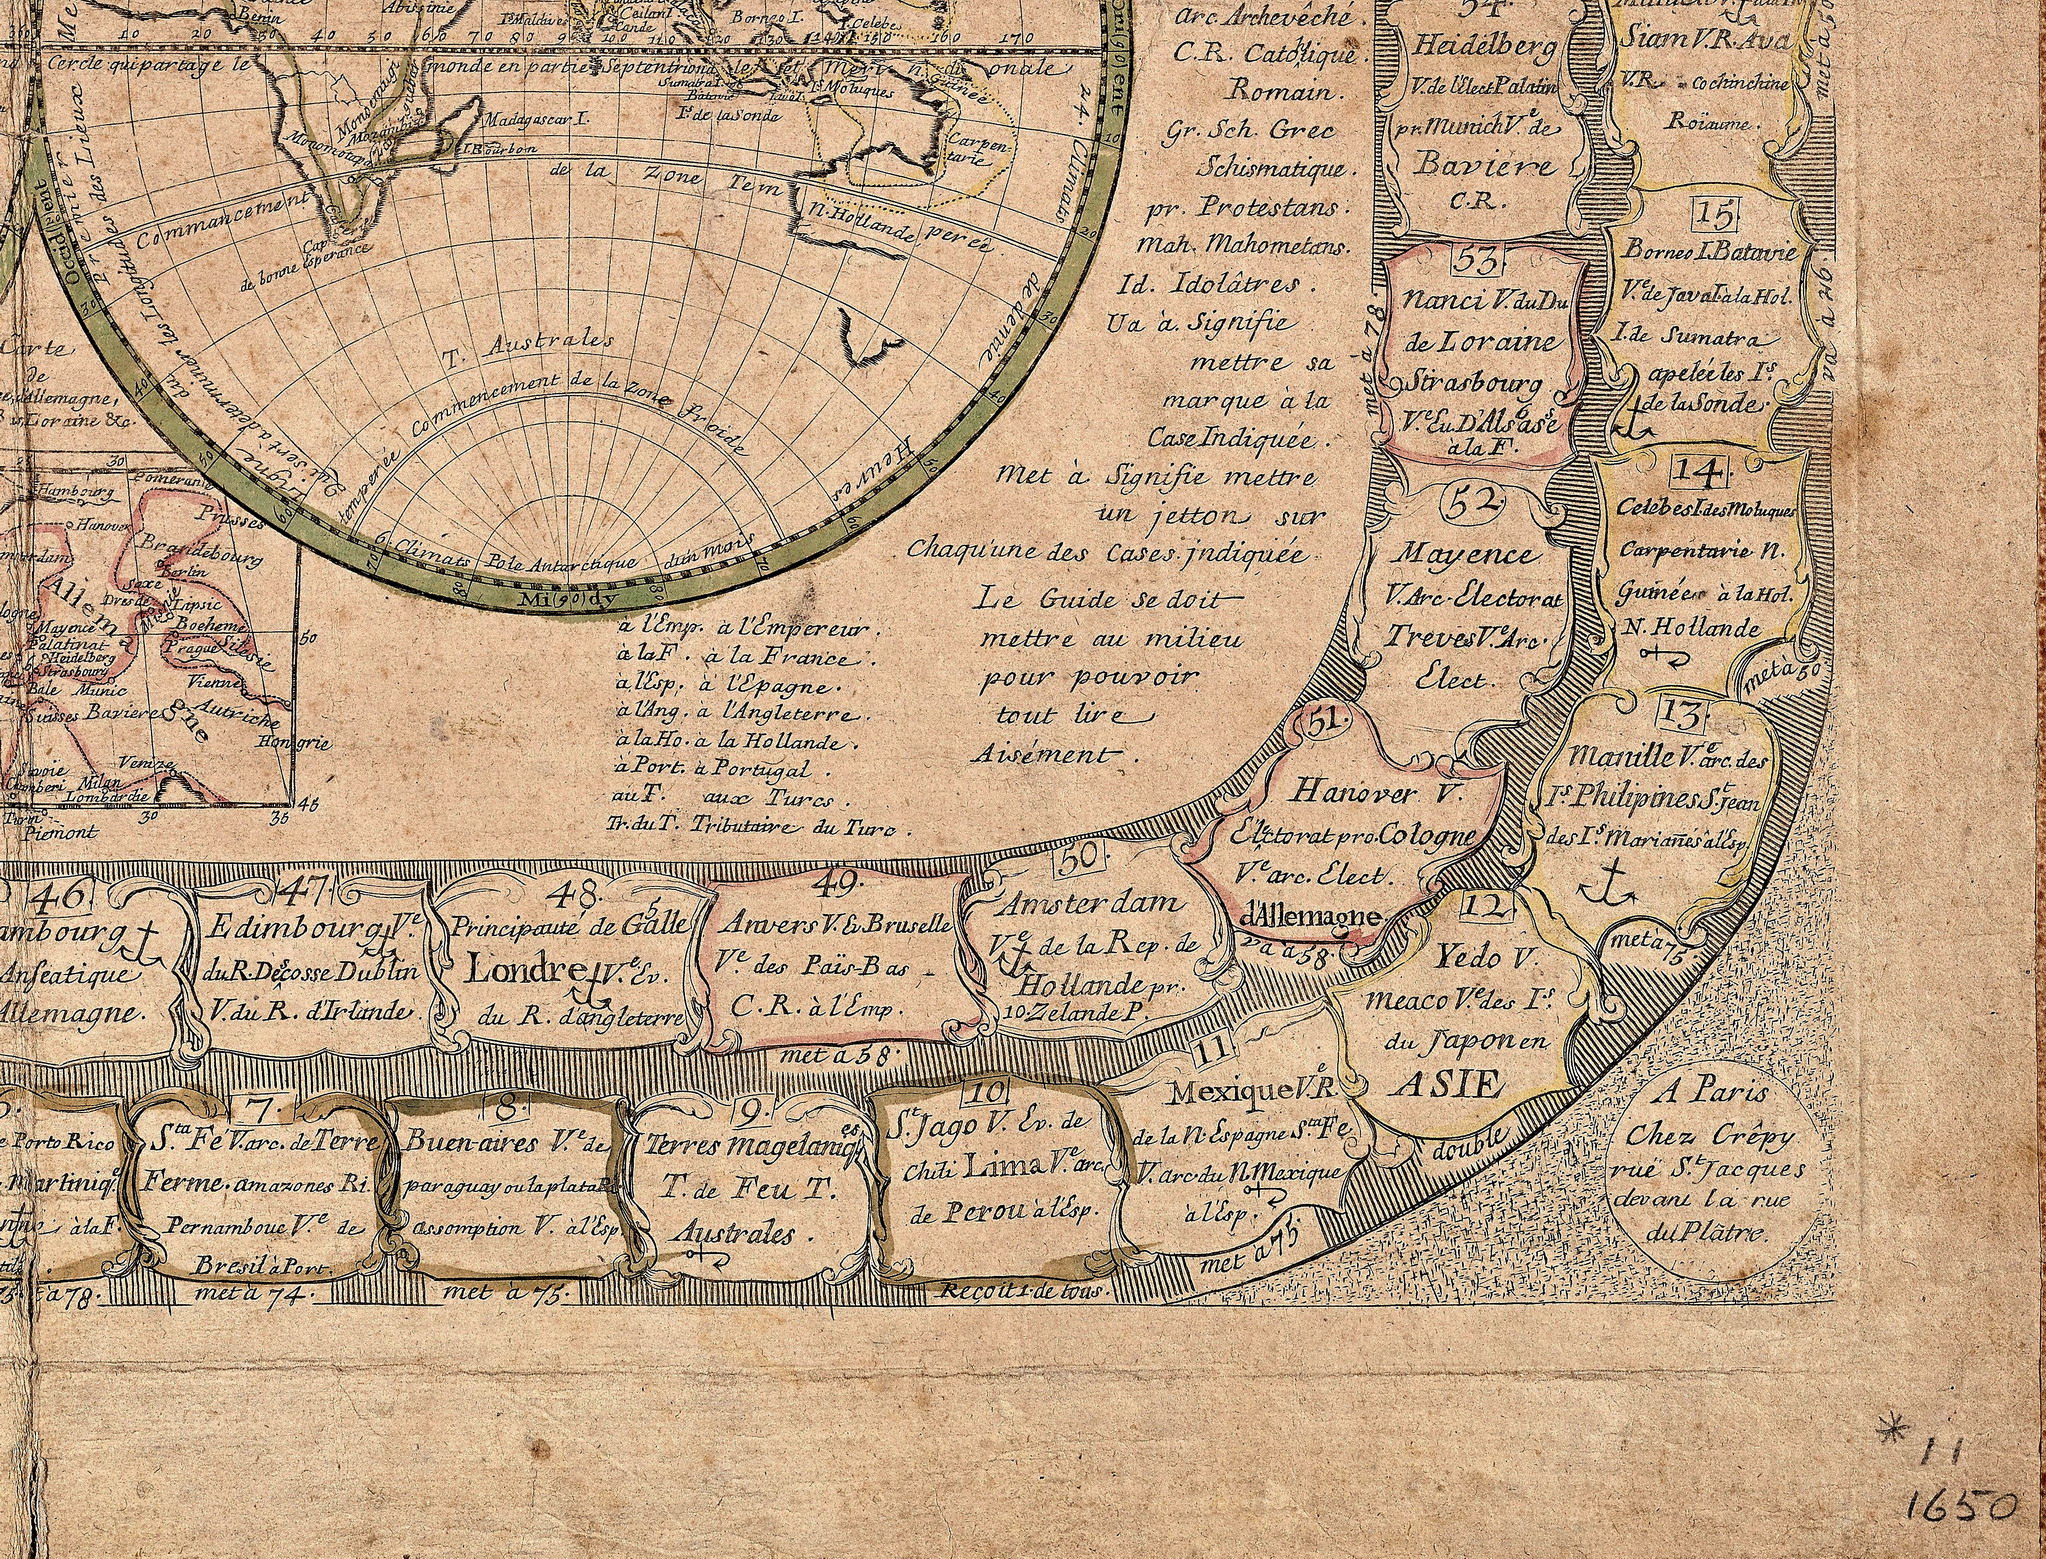 Benin
Abissinie
Is Maldives
Ceilan I.
Cande
Borneo I.
I. Celebes
10 20 30 40 50 60 70 80 90 100 110 120 130 140 150 160 170
Cercle qui partage le monde en partie Septentrionale et Meridionale
Sumatra I.
Batavie
Is Moluques
Is de la Sonde
n. Guinée
Carpen-
tarie
Monoemugi
Mozambique
Monomotapa
Madagascar I.
I. Bourbon
Commancement de la Zone Tem perée
n. Hollande
Cap
de bonne Esperance
T. Australes
Commencement de la Zone Froide
temperée
Premier
des Lieux
Occident
Orient
24. Climats
de demie
Heures
6 Climats
Pole Antarctique
dun mois
Mi(90)dy
Carte
De
d'Allemagne,
Loraine &c.
30
Hambourg
Pomeranie
Hanover
Prusses
Brandebourg
Berlin
Saxe
Dresde
Lipsic
Allemagne
Mayence
Palatinat
Heidelberg
Strasbourg
Boeheme
Prague
Silesie
50
Bale
Munic
Vienne
Suisses
Baviere
Autriche
Hongrie
Savoie
Chamberi
Milan
Lombardie
Venize
45
Turin
Piemont
30
35
à l'Emp. à l'Empereur.
à la F. à la France.
a l'Esp. à l'Epagne.
a l'Ang. à l'Angleterre.
à la Ho. a la Hollande.
à Port. à Portugal.
au T. aux Turcs.
Tr. du T. Tributaire du Turc.
Arc. Archevêché.
C.R. Catolique
Romain.
Gr. Sch. Grec
Schismatique.
pr. Protestans.
Mah. Mahometans.
Id. Idolâtres.
Ua à. Signifie
mettre sa
marque à la
Case Indiquée.
Met à Signifie mettre
un jetton sur
Chaqu'une des Cases jndiquée
Le Guide Se doit
mettre au milieu
pour pouvoir
tout lire
Aisément.
54.
Heidelberg
V. de l'Elect Palatin
pr. Munich V.e de
Baviere
C.R.
53.
Nanci V. du Du
de Loraine
Strasbourg
V.e Eu D'Alsase
à la F.
met à 78
52.
Mayence
V. Arc-Electorat
Treves V.e Arc.
Elect.
51.
Hanover V.
Electorat pro. Cologne
V.e arc. Elect.
d'Allemagne.
va à 58.
50.
Amsterdam
V.e de la Rep. de
Hollande pr.
10. Zelande P.
49.
Anvers V. Ev. Bruselle
V.e des Païs-Bas
C.R. à l'Emp.
met à 58.
48.
Principauté de Galle
Londre V.e Ev.
du R. d'angleterre
47.
Edimbourg V.e
du R. Decosse Dublin
V. du R. d'Irlande
46.
ambourg
Anseatique
Allemagne.
Siam V.R. Ava
V.R. Cochinchine
Roïaume.
met à 50
15.
Borneo I. Batavie
V.e de Java I. à la Hol.
I. de Sumatra
apelée les I.s
de la Sonde.
va à 26.
14.
Celebes I. des Moluques
Carpentarie N.
Guinée à la Hol.
N. Hollande
met à 50
13.
Manille V.e arc. des
I.s Philipines S.t Jean
des I.s Marianes à l'Esp.
met à 75
12.
Yedo V.
Meaco V.e des I.s
du Japon en
ASIE
double
11
Mexique V.e R.
de la N. Espagne S.ta Fe
V. arc. du N. Mexique
à l'Esp.
met à 75.
10
S.t Jago V. Ev. de
Chili Lima V.e arc.
de Perou à l'Esp.
Reçoit 1. de tous.
9.
Terres Magelaniq.es
T. de Feu T.
Australes.
8.
Buen-aires V.e de
paraguay ou la plata R.
assomption V. à l'Esp.
met à 75.
7.
S.ta Fé V. arc. de Terre
Ferme. amazones Ri.
Pernambouc V.e de
Bresil à Port.
met à 74.
e Porto Rico
Martiniq.e
à la F.
à 78.
A Paris
Chez Crêpy
ruë S.t Jacques
devant la rue
du Plâtre.
* 11
1650